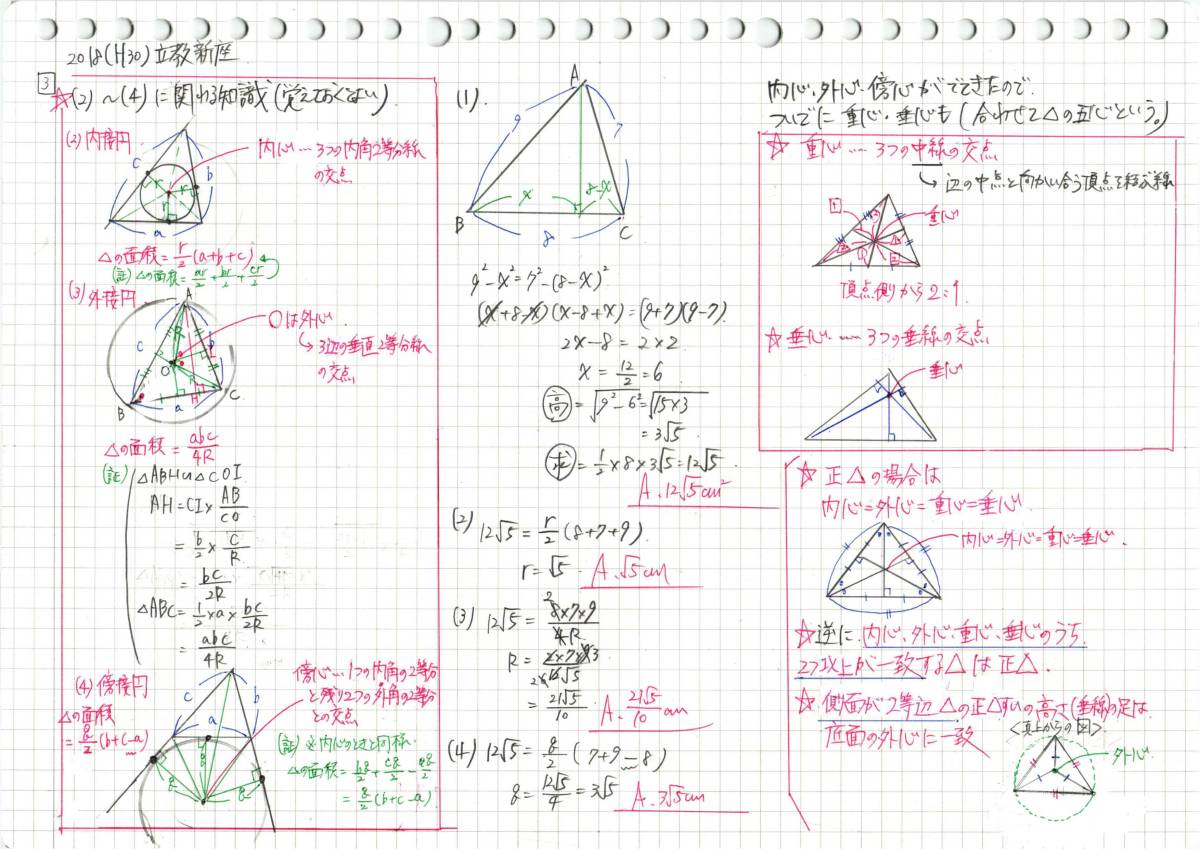 2018(H30)立教新座
3
☆(2)~(4)に関わる知識(覚えておくこと)
(2)内接円
内心…3つの内角2等分線
の交点
c
b
r
r
r
a
△の面積=r/2(a+b+c)
(証)△の面積=ar/2+br/2+cr/2
(3)外接円
A
c
R
b
O
B
a
H
I
C
Oは外心
→3辺の垂直2等分線
の交点
△の面積=abc/4R
(証)
△ABH∽△COI
AH=CI×AB/CO
=b/2×c/R
=bc/2R
△ABC=1/2×a×bc/2R
=abc/4R
(4)傍接円
△の面積
=g/2(b+c-a)
c
b
a
g
g
g
傍心…1つの内角の2等分
と残り2つの外角の2等分
との交点
(証)※内心のときと同様
△の面積=bg/2+cg/2-ag/2
=g/2(b+c-a)
(1).
A
9
7
x
8-x
B
8
C
9²-x²=7²-(8-x)²
(x+8-x)(x-8+x)=(9+7)(9-7)
2x-8=2×2
x=12/2=6
高=√9²-6²=√15×3
=3√5
求=1/2×8×3√5=12√5.
A.12√5cm²
(2)
12√5=r/2(8+7+9)
r=√5
A.√5cm
(3)
12√5=8×7×9/4R
2
R=2×7×9/12√5
3
2
=21√5/10
A.21√5/10cm
(4)12√5=g/2(7+9-8)
g=12√5/4=3√5
A.3√5cm
内心・外心・傍心がでてきたので
ついでに重心・垂心も(合わせて△の五心という。)
☆重心……3つの中線の交点
→辺の中点と向かい合う頂点を結ぶ線
重心
頂点側から2:1
☆垂心……3つの垂線の交点
垂心
☆正△の場合は
内心=外心=重心=垂心
内心=外心=重心=垂心.
☆逆に内心、外心、重心、垂心のうち
2つ以上が一致する△は正△.
☆側面が2等辺△の正△すいの高さ(垂線)の足は
底面の外心に一致
<真上からの図>
外心